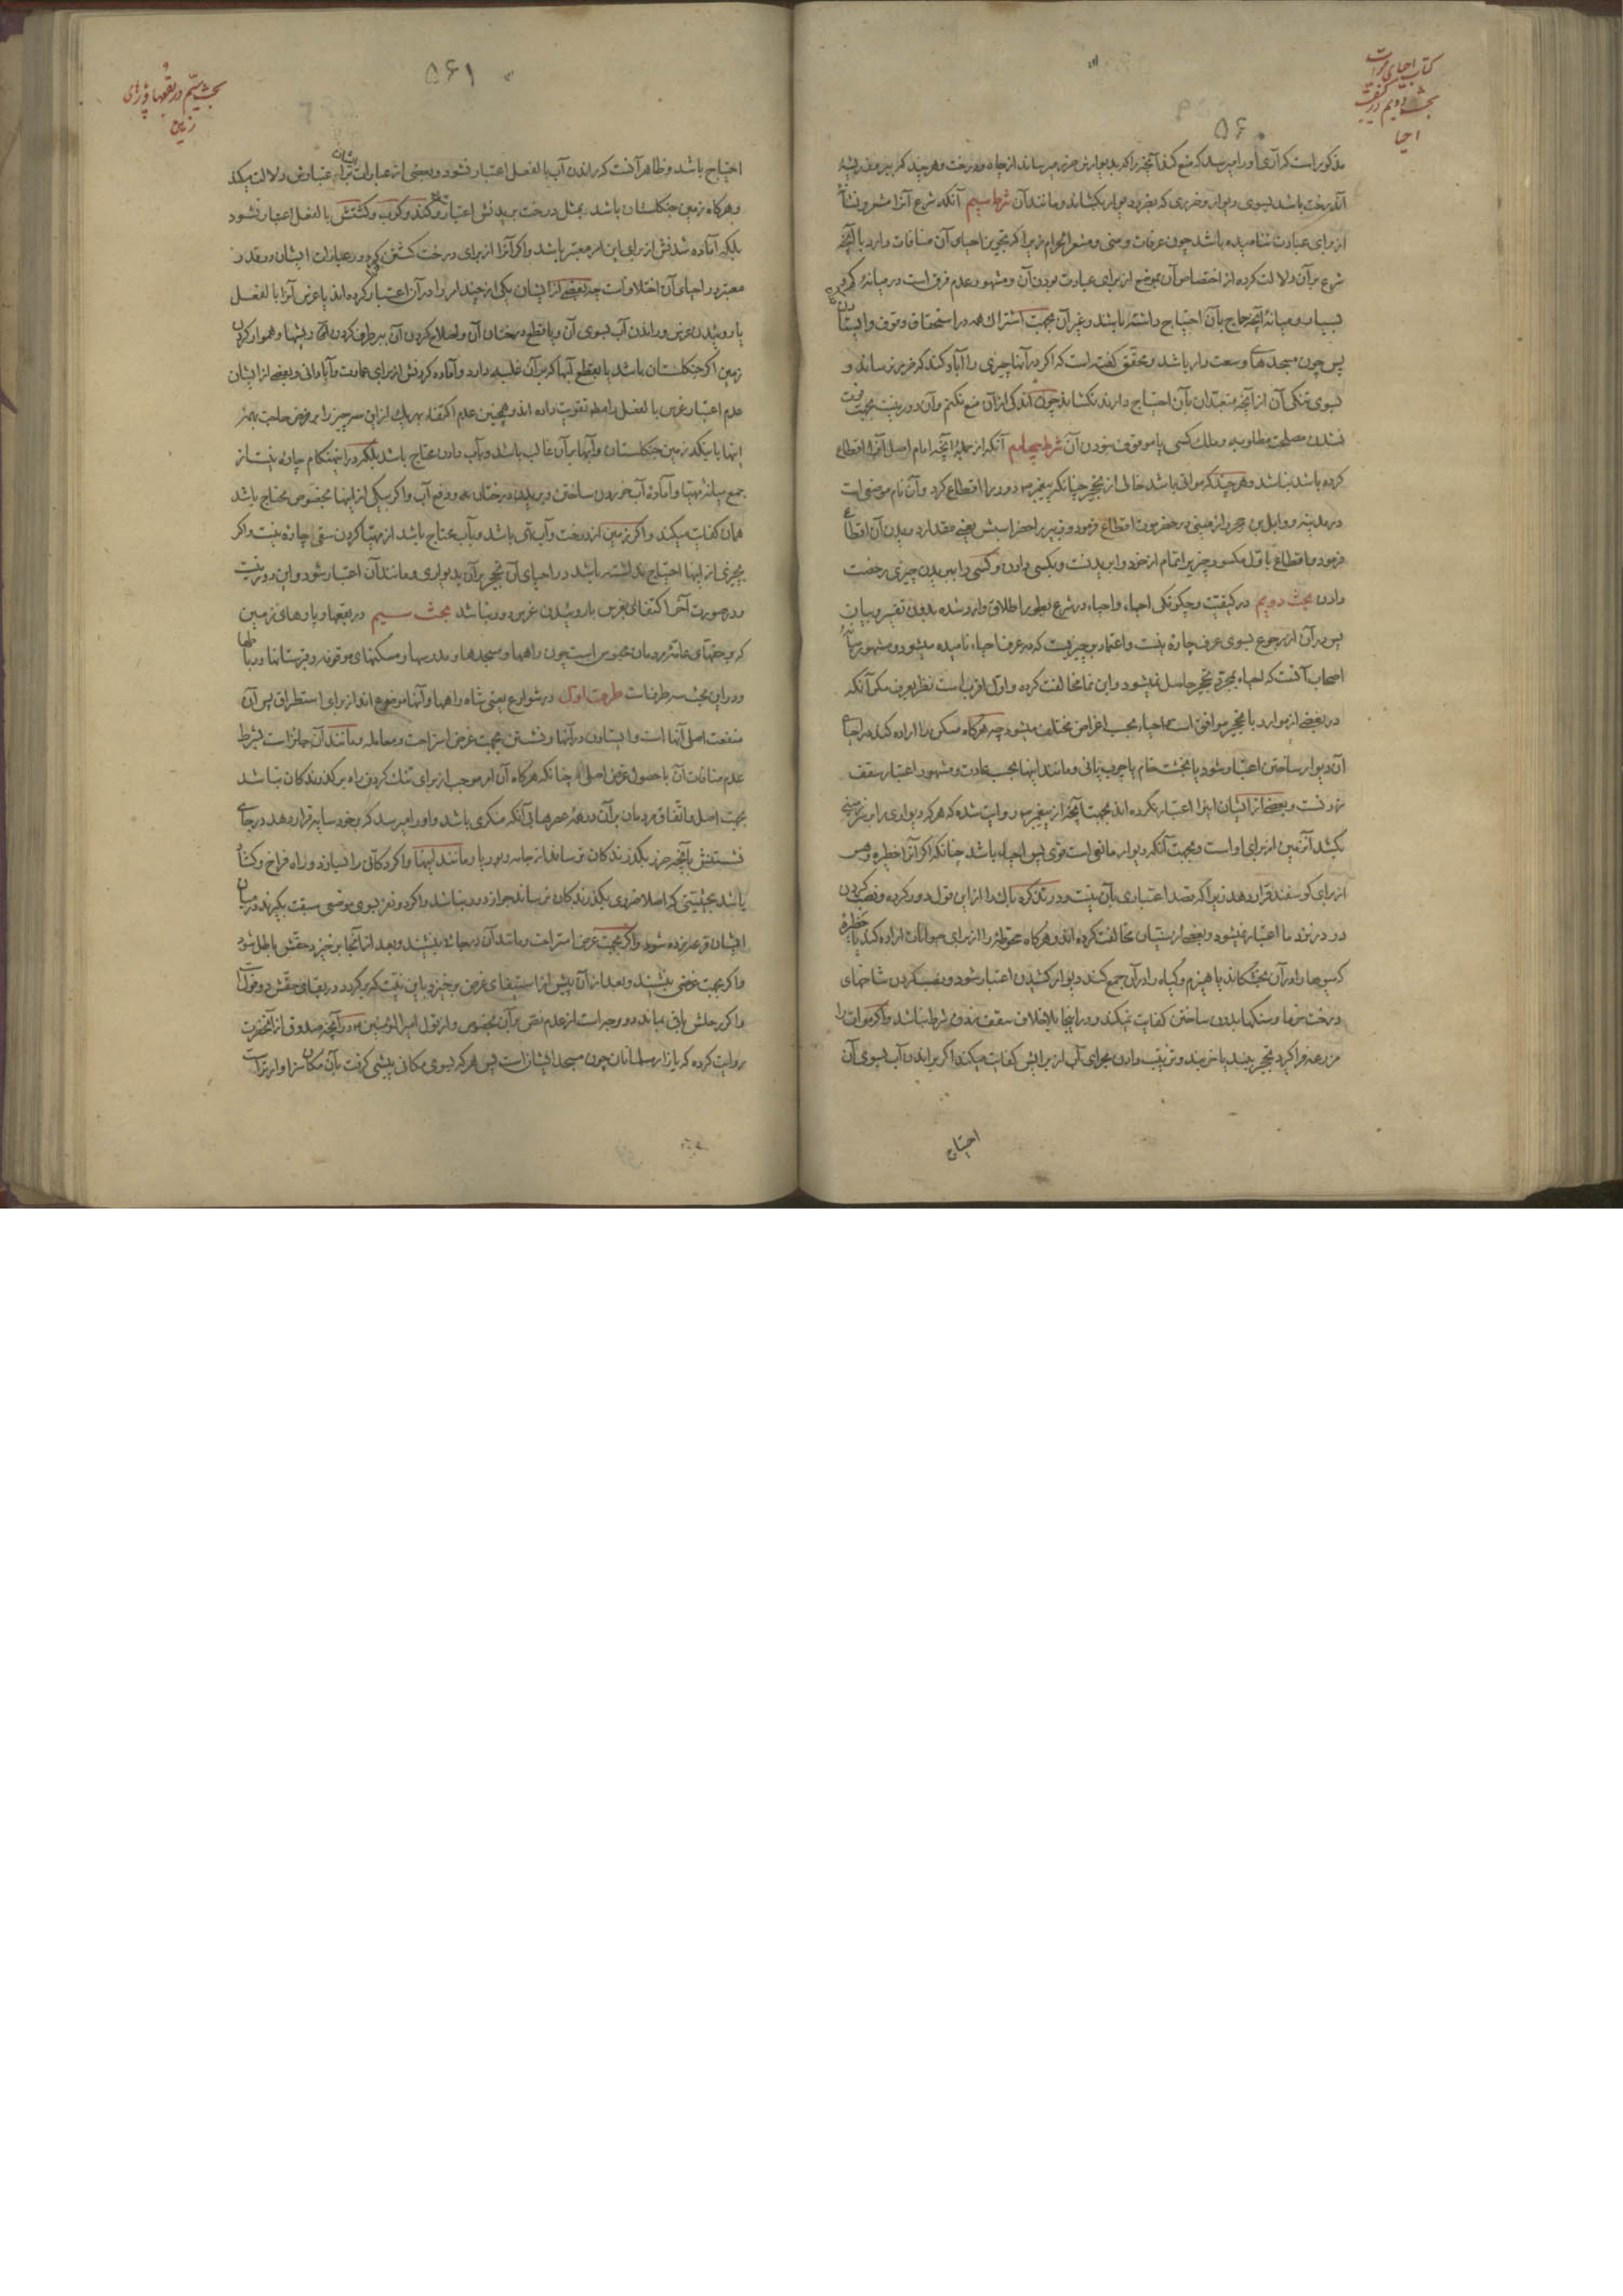 کتاب احیای موات
بحث دویم در کیفیت
احیا
۵۶۰
مذکور است که آری او را میرسد که منع کند آنچه را که بدیوارش ضرر میرساند از چاه و درخت و هر چند که
آندرخت باشد بسوی دیوار و ضرری که بدیوار بکشاند و مانند آن شرط سیم آنکه شرع آنرا مشعر و نشانه
از برای عبادت ننامیده باشد چون عرفات و منی و مشعر الحرام زیرا که تجویز احیای آن منافات دارد با آنچه
شرع بر آن دلالت کرده از اختصاص آن موضع از برای عبادت بودن آن و مشهور عدم فرق است در میانهٔ کم
بسیار و میانهٔ آنچه حاج بآن احتیاج داشته باشد و غیر آن بجهت اشتراک همه در استحقاق وقوف و ایستادن
پس چون مسجدهای وسعت دار باشد و محقق گفته است که اگر در آنها چیزی را آباد کند که ضرر نرساند و
بسوی تنگی آن از آنچه متعبدان بآن احتیاج دارند نکشاند چون اندکی از آن منع نکنم و آن دور نیست بجهت فوت
نشدن مصلحت مطلوبه و ملک کسی یا موقوف نبودن آن شرط چهارم آنکه از جملهٔ آنچه امام اصل آنرا اقطاع
کرده باشد نباشد و هر چند که مواتی باشد خالی از تحجیر چنانکه پیغمبر ص دور را اقطاع کرد و آن نام موضعی است
در مدینه و وابل بن حجر را زمینی در حضرموت اقطاع فرمود و زبیر را حضر اسبش یعنی مقدار دویدن آن اقطاع
فرمود و اقطاع باول مکسور چیزیرا تمام از خود وابریدنست و بکسی دادن و کسی را ببریدن چیزی رخصت
دادن بحث دویم در کیفیت و چگونگی احیاء و احیاء در شرع بطور اطلاق وارد شده بدون تفسیر و بیان
پس در آن از رجوع بسوی عرف چاره نیست و اعتماد بچیزیست که در عرف احیاء نامیده میشود و مشهور میانهٔ
اصحاب آنست که احیاء بمجرد تحجیر حاصل نمیشود و ابن نما مخالفت کرده و اول اقرب است نظر بعرف مگر آنکه
در بعضی از موارد با تحجیر موافق است احیاء بحسب اغراض مختلف میشود چه هرگاه مسکن را اراده کند در احیاء
آن دیوار ساختن اعتبار شود یا بخشت خام یا چوب یا نی و مانند اینها بحسب عادت و مشهور اعتبار سقف
زدنست و بعضی از ایشان اینرا اعتبار نکرده اند بجهت آنچه از پیغمبر ص روایت شده که هر که دیواری را بر زمینی
بکشد آنزمین از برای او است و بجهت آنکه دیوار مانعی است قوی پس احیاء باشد چنانکه اگر آنرا حظیره و
از برای گوسفند قرار دهد زیرا که قصد اعتباری بآن نیست و در تذکره باک را از این قول دور کرده و نصب کردن
در در نزد ما اعتبار نمیشود و بعضی از سنیان مخالفت کرده اند و هرگاه محوطه را از برای حیوانات اراده کند یا حظیره
که میوها را در آن بخشکاند یا هیزم و گیاه را در آن جمع کند دیوار کشیدن اعتبار شود و نصب کردن شاخهای
درخت و سنگها بدون ساختن کفایت نمیکند و در اینجا بلا خلاف سقف زدن شرط نباشد و اگر موات را
مزرعه فراگیرد تحجیر ببند یا خربند و ترتیب دادن مجرای آب از برایش کفایت میکند اگر براندن آب بسوی آن
احتیاج
بحث سیم در بقعها و پارهای
زمین
۵۶۱
احتیاج باشد و ظاهر آنست که راندن آب بالفعل اعتبار نشود و بعضی از عبارات ایشان بر اعتبارش دلالت میکند
و هرگاه زمین جنگلستان باشد بمثل درخت بریدنش اعتبار و کشتنش بالفعل اعتبار نشود
بلکه آماده شدنش از برای این امر معتبر باشد و اگر آنرا از برای درخت کشتن گیرد در عبارات ایشان در قدر
معتبر در احیای آن اختلافست چه بعضی از ایشان یکی از چند امر را در آن اعتبار کرده اند یا غرس آنرا بالفعل
یا روئیدن غرس و راندن آب بسوی آن و یا قطع درختان آن و اصلاح کردن آن ببرطرف کردن و هموار کردن
زمین اگر جنگلستان باشد یا بقطع آبها که بر آن غلبه دارد و آماده کردنش از برای عمارت و آبادانی و بعضی از ایشان
عدم اعتبار غرس بالفعل را تقویت داده اند و همچنین عدم اکتفاء بهر یک از این سه چیز را بر فرض حاجت بهمهٔ
اینها باینکه زمین جنگلستان و آبها بر آن غالب باشد و بآب دادن محتاج باشد بلکه در اینهنگام چاره نیست از
جمع میانهٔ مهیا و آمادهٔ آبخوردن ساختن و بریدن درختان و دفع آب و اگر بیکی از اینها بخصوص محتاج باشد
همان کفایت میکند و اگر زمین از درخت و آب تهی باشد و بآب محتاج باشد از مهیا کردن سقی چاره نیست و اگر
بچیزی از اینها احتیاج نداشته باشد در احیای آن تحجیر بر آن بدیواری و مانند آن اعتبار شود و این دور نیست
و در صورت آخر اکتفا بغرس یا روئیدن غرس دور نباشد بحث سیم در بقعها و پارهای زمین
که بحقهای عامهٔ مردمان محبوس است چون راهها و مسجدها و مدرسها و مسکنهای موقوفه و قبرستانها و رباطها
و در این بحث سه طرفست طرف اول در شوارع یعنی شاه راهها و آنها موضوع اند از برای استطراق پس آن
منفعت اصلی آنها است و ایستادن در آنها و نشستن بجهت غرض استراحت و معامله و مانند آن جایز است بشرط
عدم منافات آن با حصول غرض اصلی چنانکه هرگاه آن امر موجب از برای تنگ کردن راه بر گذرندگان نباشد
بجهت اصل و اتفاق مردمان بر آن در همهٔ عصرها بی آنکه منکری باشد و او را میرسد که بر خود سایه قرار دهد در جای
نشستنش بآنچه ضرر بگذرندگان نرساند از جامه و بوریا و مانند اینها و اگر دکانی را بسازد و راه فراخ و گشاده
باشد بحیثیتی که اصلا ضرری بگذرندگان نرساند جواز دور نباشد و اگر دو نفر بسوی موضعی سبقت بگیرند در میان
ایشان قرعه زده شود و اگر بجهت غرض استراحت و مانند آن در جائی بنشیند و بعد از آنجا برخیزد حقش باطل شود
و اگر بجهت غرضی بنشیند و بعد از آن پیش از استیفای غرض برخیزد باین نیت که برگردد در بقای حقش دو قولست
و اگر رحلش باقی بماند دو وجه است از عدم نص بر آن بخصوص و از قول امیر المؤمنین ع در آنچه صدوق از آنحضرت
روایت کرده که بازار مسلمانان چون مسجد ایشان است پس هر که بسوی مکانی پیشی گرفت بآن مکان سزاوارتر است